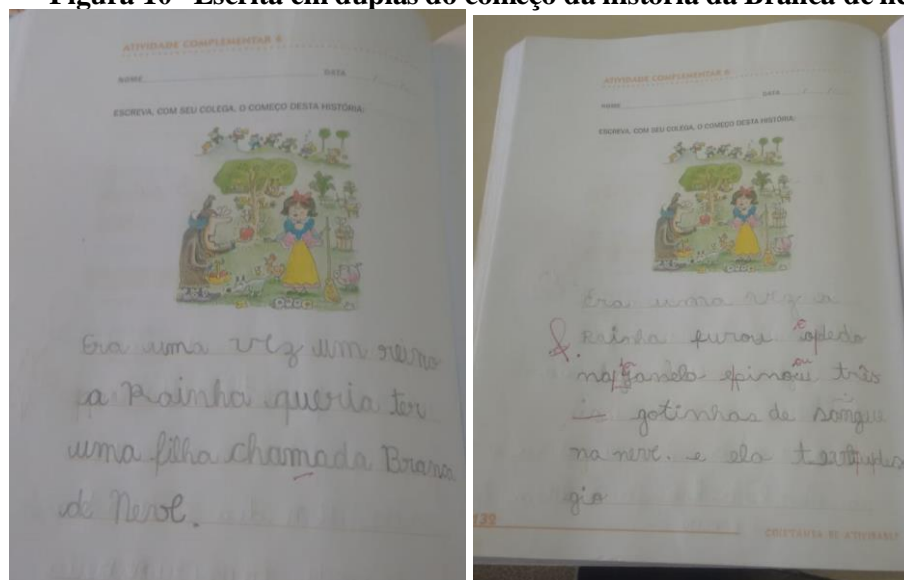 Figura 10 - Escrita em duplas do começo da história da Branca de ne
ATIVIDADE COMPLEMENTAR 6
NOME DATA / /
ESCREVA, COM SEU COLEGA, O COMEÇO DESTA HISTÓRIA:
Era uma vez um reino
a Rainha queria ter
uma filha chamada Branca
de Neve.
ATIVIDADE COMPLEMENTAR 6
NOME DATA / /
ESCREVA, COM SEU COLEGA, O COMEÇO DESTA HISTÓRIA:
Era uma vez a
Rainha furou
três
gotinhas de sangue
na neve. e ela
gia
132
COLETÂNEA DE ATIVIDADES